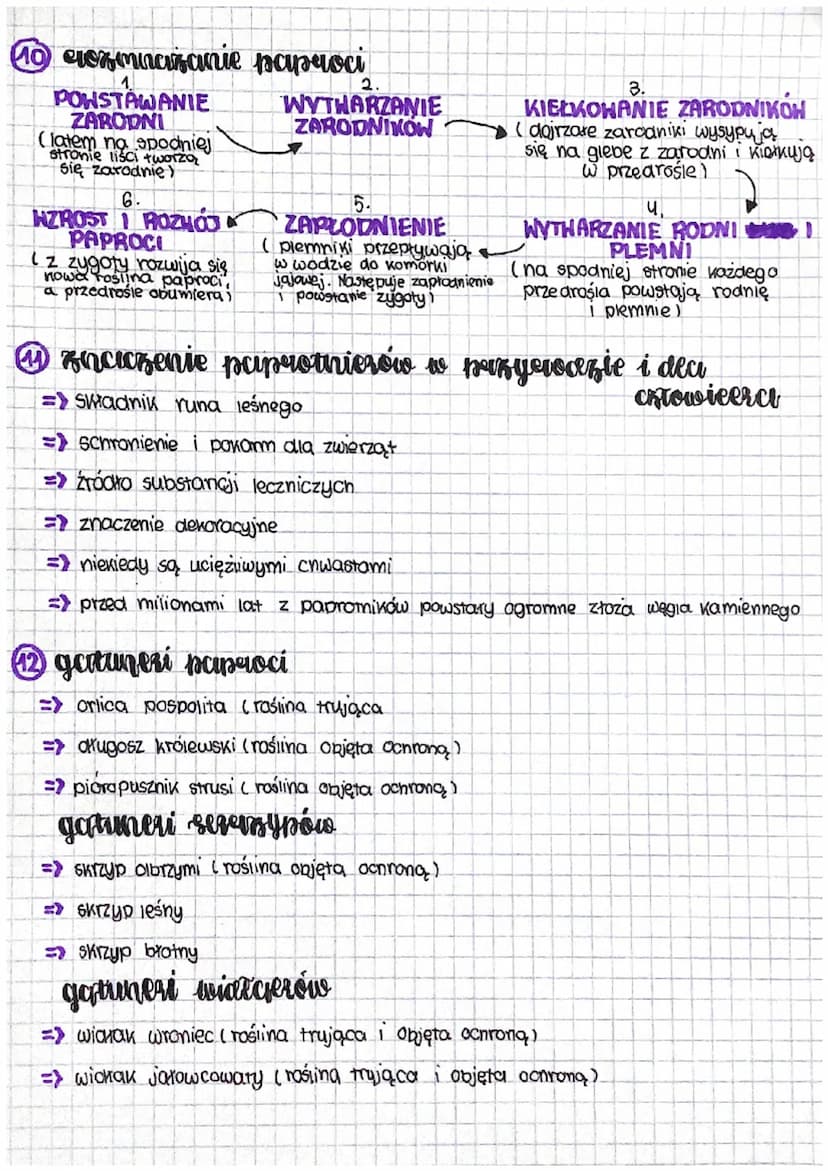 10 rozmnażanie paproci
1.
POWSTAWANIE
ZARODNI
(latem na spodniej
stronie liści tworzą
się zarodnie)
2.
WYTWARZANIE
ZARODNIKÓW
3.
KIEŁKOWANIE ZARODNIKÓW
(dojrzałe zarodniki wysypują
się na glebe z zarodni i kiełkują
w przedrośle)
4.
WYTWARZANIE RODNI I
PLEMNI
(na spodniej stronie każdego
przedrośla powstają rodnię
i plemnie)
5.
ZAPŁODNIENIE
(plemniki przepływają
w wodzie do komórki
jajowej. Następuje zapłodnienie
i powstanie zygoty)
6.
WZROST I ROZWÓJ
PAPROCI
(z zygoty rozwija się
nowa roślina paproci,
a przedrośle obumiera)
11 znaczenie paprotników w przyrodzie i dla
człowieka
=> składnik runa leśnego
=> schronienie i pokarm dla zwierząt
=> źródło substancji leczniczych
=> znaczenie dekoracyjne
=> niekiedy są uciężliwymi chwastami
=> przed milionami lat z paprotników powstały ogromne złoża węgla kamiennego
12 gatunki paproci
=> orlica pospolita (roślina trująca
=> długosz królewski (roślina objęta ochroną)
=> pióropusznik strusi (roślina objęta ochroną)
gatunki skrzypów
=> skrzyp olbrzymi (roślina objęta ochroną)
=> skrzyp leśny
=> skrzyp błotny
gatunki widłaków
=> widłak wroniec (roślina trująca i objęta ochroną)
=> widłak jałowcowaty (roślina trująca i objęta ochroną)